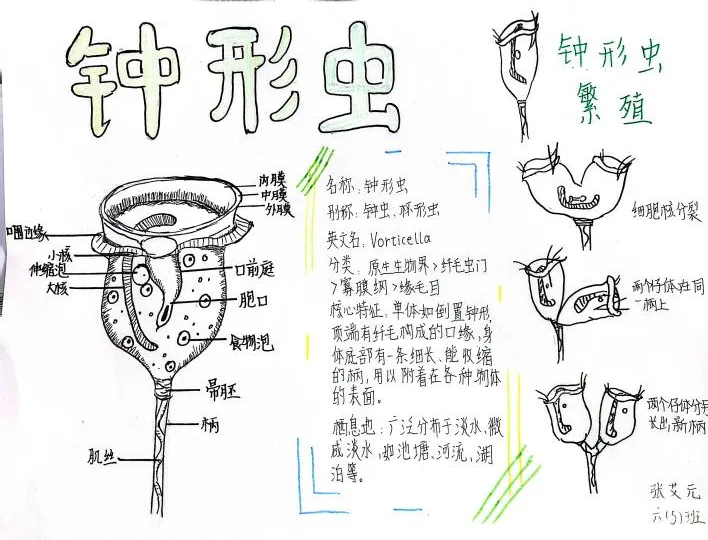 钟形虫
钟形虫
繁殖
内膜
中膜
外膜
口围边缘
小核
伸缩泡
大核
口前庭
胞口
食物泡
帚胚
柄
肌丝
名称：钟形虫
别称：钟虫、杯形虫
英文名：Vorticella
分类：原生生物界>纤毛虫门
>寡膜纲>缘毛目
核心特征：单体如倒置钟形，
顶端有纤毛构成的口缘，身
体底部有一条细长、能收缩
的柄，用以附着在各种物体
的表面。
栖息地：广泛分布于淡水、微
咸淡水，如池塘、河流、湖
泊等。
细胞核分裂
两个仔体在同
一柄上
两个仔体分另
长出新柄
张艾元
六(5)班